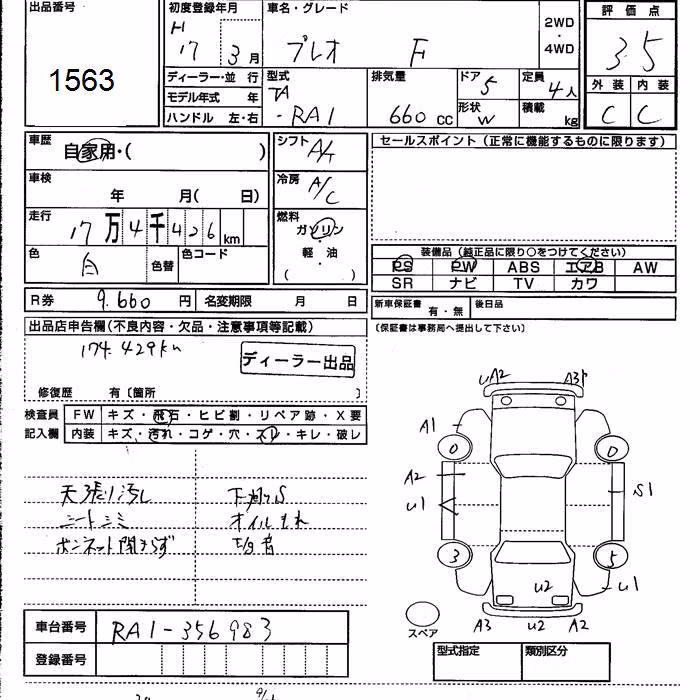 出品番号
1563
初度登録年月
H
17 3月
車名・グレード
プレオ F
2WD
・
4WD
評価点
3.5
外装 内装
C C
ディーラー・並行
モデル年式 年
ハンドル 左・右
型式
TA
-RA1
排気量
660 cc
ドア 5
形状 W
定員 4人
積載 kg
車歴
自家用・( )
車検
年 月( 日)
走行
17万4千426km
色
白
色替
色コード
シフト
A/T
冷房
A/C
燃料
ガソリン
・
軽・油
( )
セールスポイント(正常に機能するものに限ります)
装備品(純正品に限り○をつけてください)
PS PW ABS エアB AW
SR ナビ TV カワ
R券 9.660円 名変期限 月 日
新車保証書 有・無 後日品
(保証書は事務局へ提出して下さい)
出品店申告欄(不良内容・欠品・注意事項等記載)
174.429km
ディーラー出品
修復歴 有〔箇所 〕
検査員 FW キズ・飛石・ヒビ割・リペア跡・X要
記入欄 内装 キズ・汚れ・コゲ・穴・スレ・キレ・破レ
天張り汚レ
シートシミ
ボンネット開きらず
下廻りS
オイルもれ
A2
A3
A1
0
0
A2
U1
S1
3
5
U2
U1
A3 U2 A2
スペア
車台番号 RA1-356983
登録番号
型式指定
類別区分